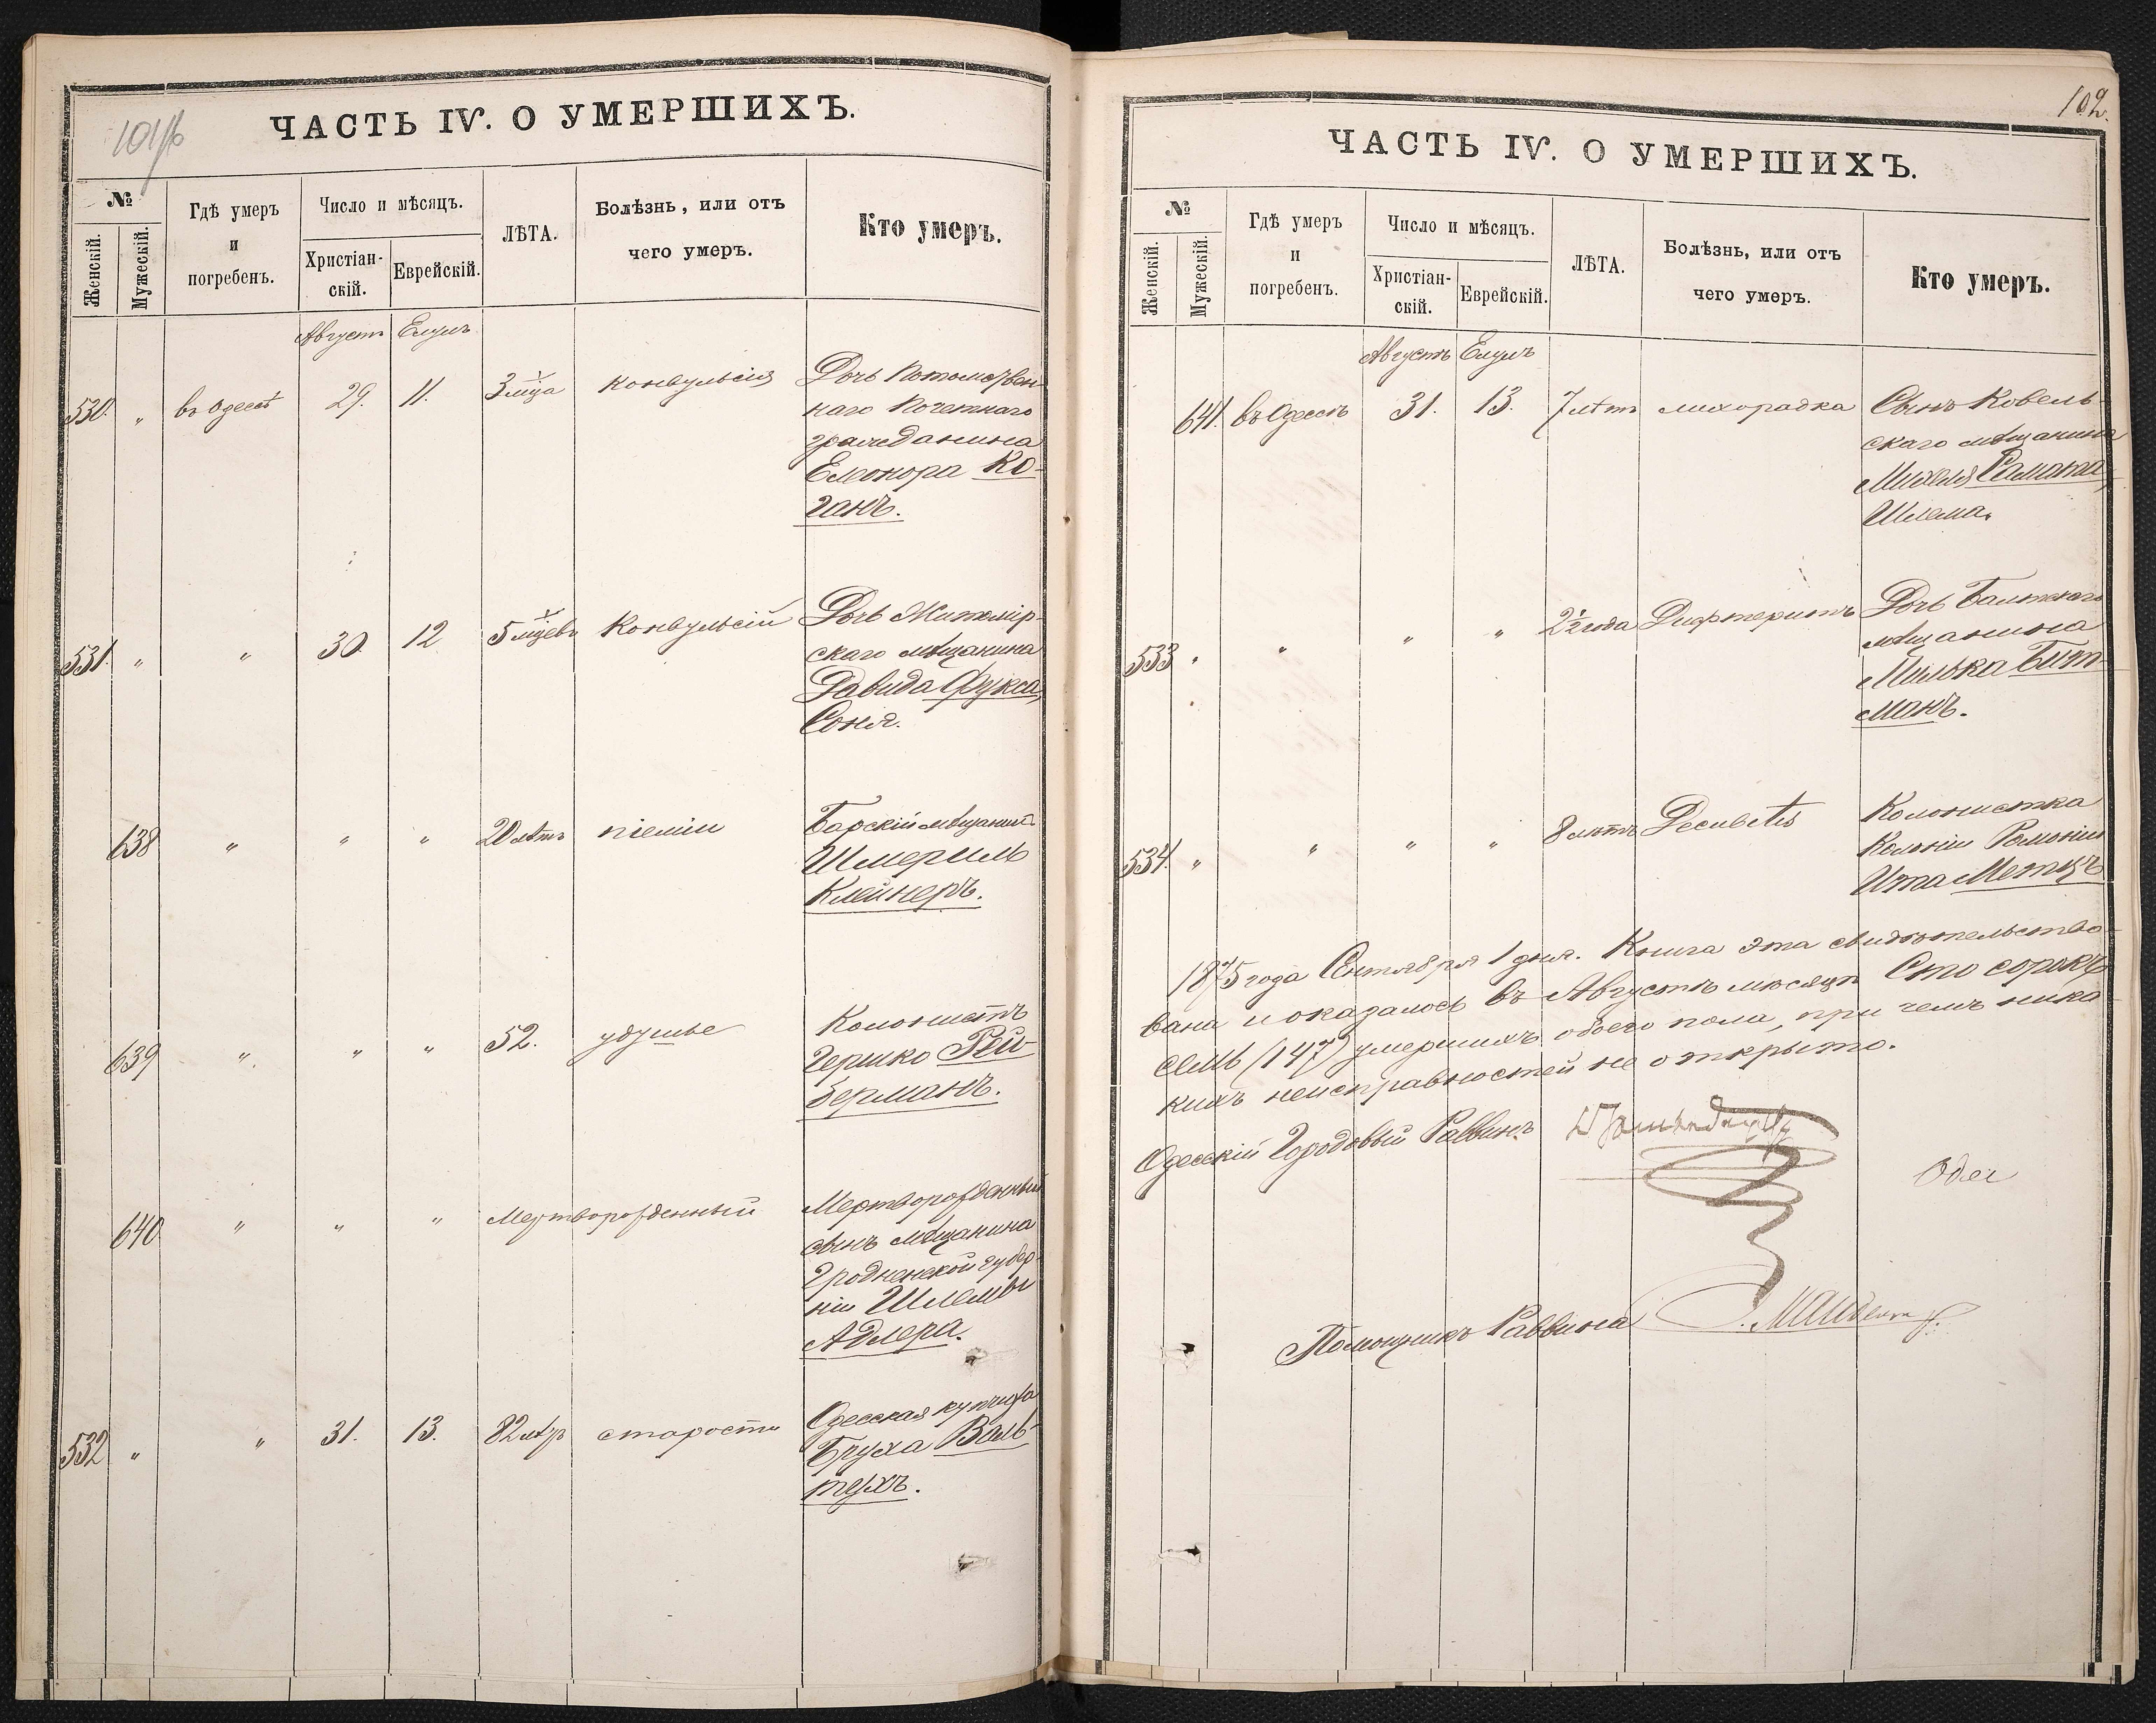 101/b
ЧАСТЬ IV. О УМЕРШИХЪ.
№
Женскій.
Мужескій.
Гдѣ умеръ
и
погребенъ.
Число и мѣсяцъ.
Христіан-
скій.
Еврейскій.
ЛѢТА.
Болѣзнь, или отъ
чего умеръ.
Кто умеръ.
Августъ Елулъ
530. " въ Одессѣ 29. 11. 3 мца конвульсія
Дочь Потомствен-
наго Почетнаго
гражданина
Елеонора Ко-
ганъ.
531. " " 30. 12 5 мцевъ Конвульсій
Дочь Житомір-
скаго мѣщанина
Давида Фукса,
Соня.
638 " " " 20 лѣтъ піеміи
Барскій мѣщанинъ
Шмериль
Клейнеръ.
639 " " " 52. удушье
Колонистъ
Гершко Рей-
берманъ.
640 " " " Мертворожденный
Мертворожденный
сынъ мѣщанина
Гродненской губер-
ніи Шлемы
Адлера.
532 " " 31. 13. 82 лѣт старости
Одесская купчиха
Бруха Валь-
терхъ.
102.
ЧАСТЬ IV. О УМЕРШИХЪ.
№
Женскій.
Мужескій.
Гдѣ умеръ
и
погребенъ.
Число и мѣсяцъ.
Христіан-
скій.
Еврейскій.
ЛѢТА.
Болѣзнь, или отъ
чего умеръ.
Кто умеръ.
Августъ Елулъ
641. въ Одессѣ 31. 13. 7 лѣтъ лихорадка
Сынъ Ковель-
скаго мѣщанина
Михеля
Шлема.
533 " " " " 2½ года Дифтеритъ
Дочь Балтскаго
мѣщанина
Милька Бит-
манъ.
534. " " " " 8 лѣтъ
Колонистка
Колоніи
Ита Метцъ
1875 года Сентября 1 дня. Книга эта свидѣтельство-
вана и оказалось въ Августѣ мѣсяцѣ Сто сорокъ
семь (147) умершихъ обоего пола, при чемъ ника-
кихъ неисправностей не открыто.
Одесскій Городовый Раввинъ
Одес
Помощникъ Раввина